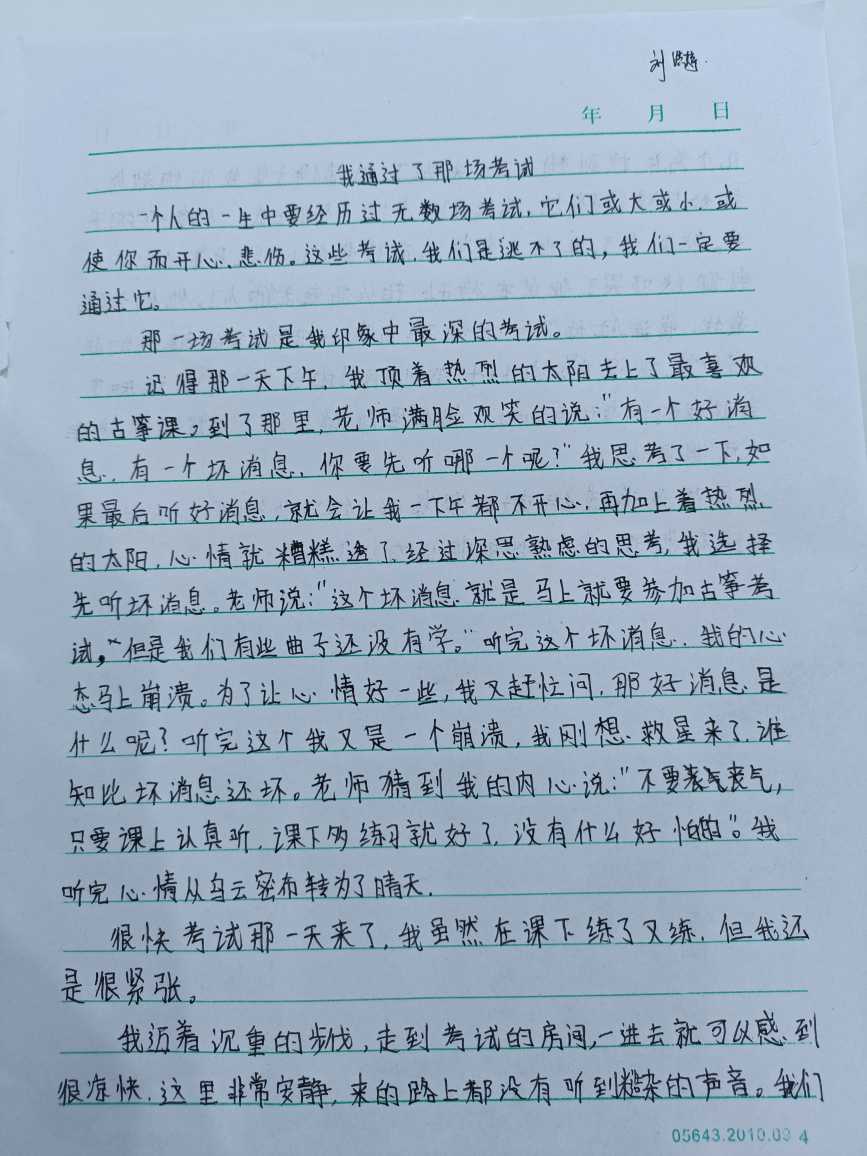 刘
年 月 日
我通过了那场考试
一个人的一生中要经历过无数场考试，它们或大或小，或
使你而开心、悲伤。这些考试，我们是逃不了的，我们一定要
通过它。
那一场考试是我印象中最深的考试。
记得那一天下午，我顶着热烈的太阳去上了最喜欢
的古筝课，到了那里，老师满脸欢笑的说：“有一个好消
息，有一个坏消息，你要先听哪一个呢？”我思考了一下，如
果最后听好消息，就会让我一下午都不开心，再加上着热烈
的太阳，心情就糟糕透了，经过深思熟虑的思考，我选择
先听坏消息。老师说：“这个坏消息就是马上就要参加古筝考
试，”“但是我们有些曲子还没有学。”听完这个坏消息，我的心
态马上崩溃。为了让心情好一些，我又赶忙问，那好消息是
什么呢？听完这个我又是一个崩溃，我刚想救星来了，谁
知比坏消息还坏。老师猜到我的内心说：“不要丧气丧气，
只要课上认真听，课下多练习就好了，没有什么好怕的”。我
听完心情从乌云密布转为了晴天.
很快考试那一天来了，我虽然在课下练了又练，但我还
是很紧张。
我迈着沉重的步伐，走到考试的房间，一进去就可以感到
很凉快，这里非常安静，来的路上都没有听到糙杂的声音。我们
05643.2010.09 4